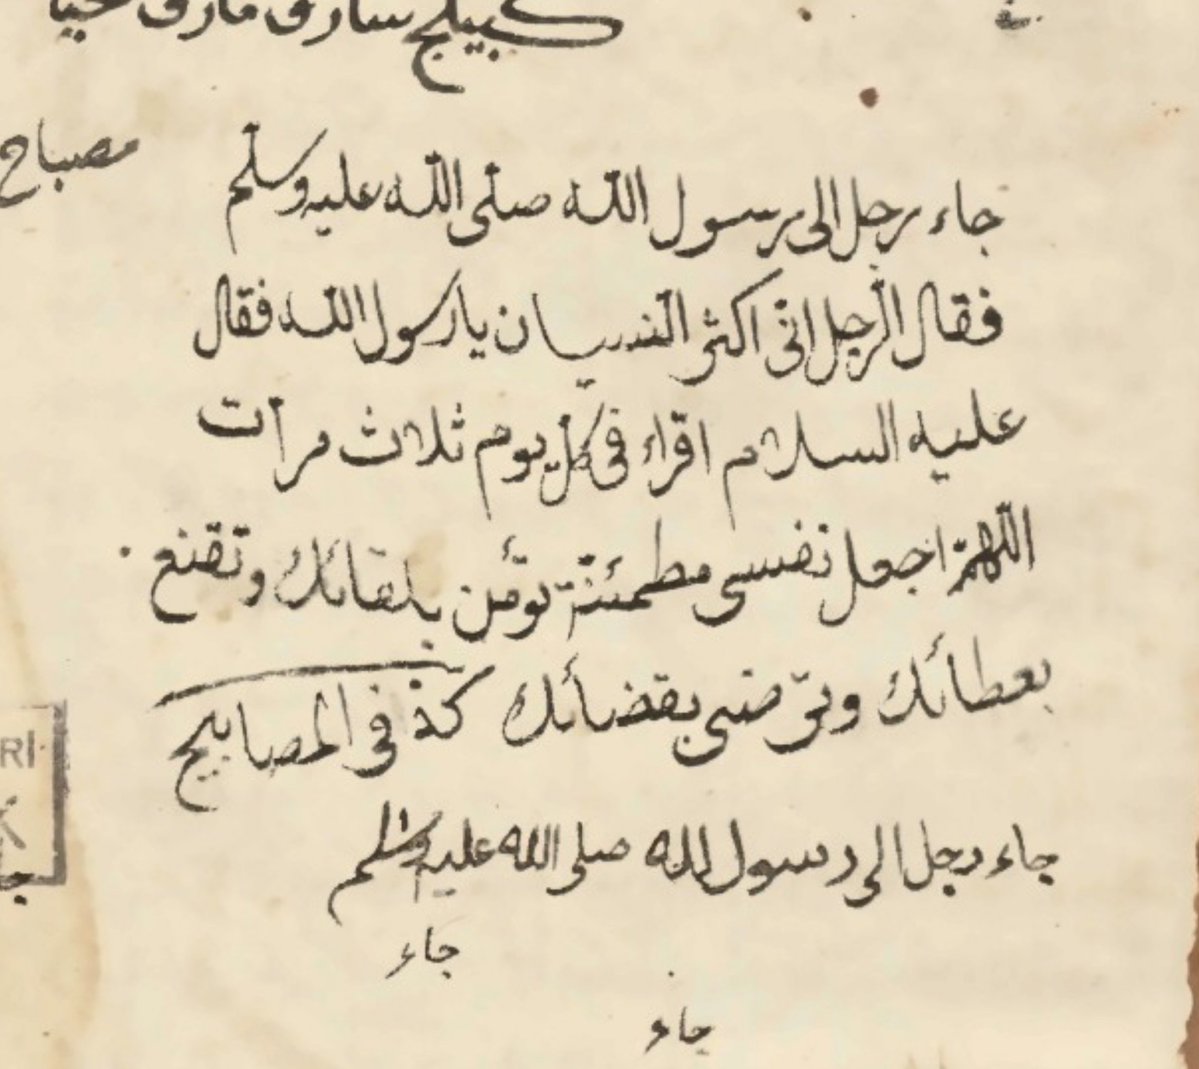 مصباح
جاء رجل الى رسول الله صلى الله عليه وسلم
فقال الرجل انى اكثر النسيان يا رسول الله فقال
عليه السلام اقراء فى كل يوم ثلاث مرات
اللهم اجعل نفسى مطمئنة تؤمن بلقائك وتقنع
بعطائك وترضى بقضائك كذا فى المصابيح
جاء رجل الى رسول الله صلى الله عليه وسلم
جاء
جاء
RI
K